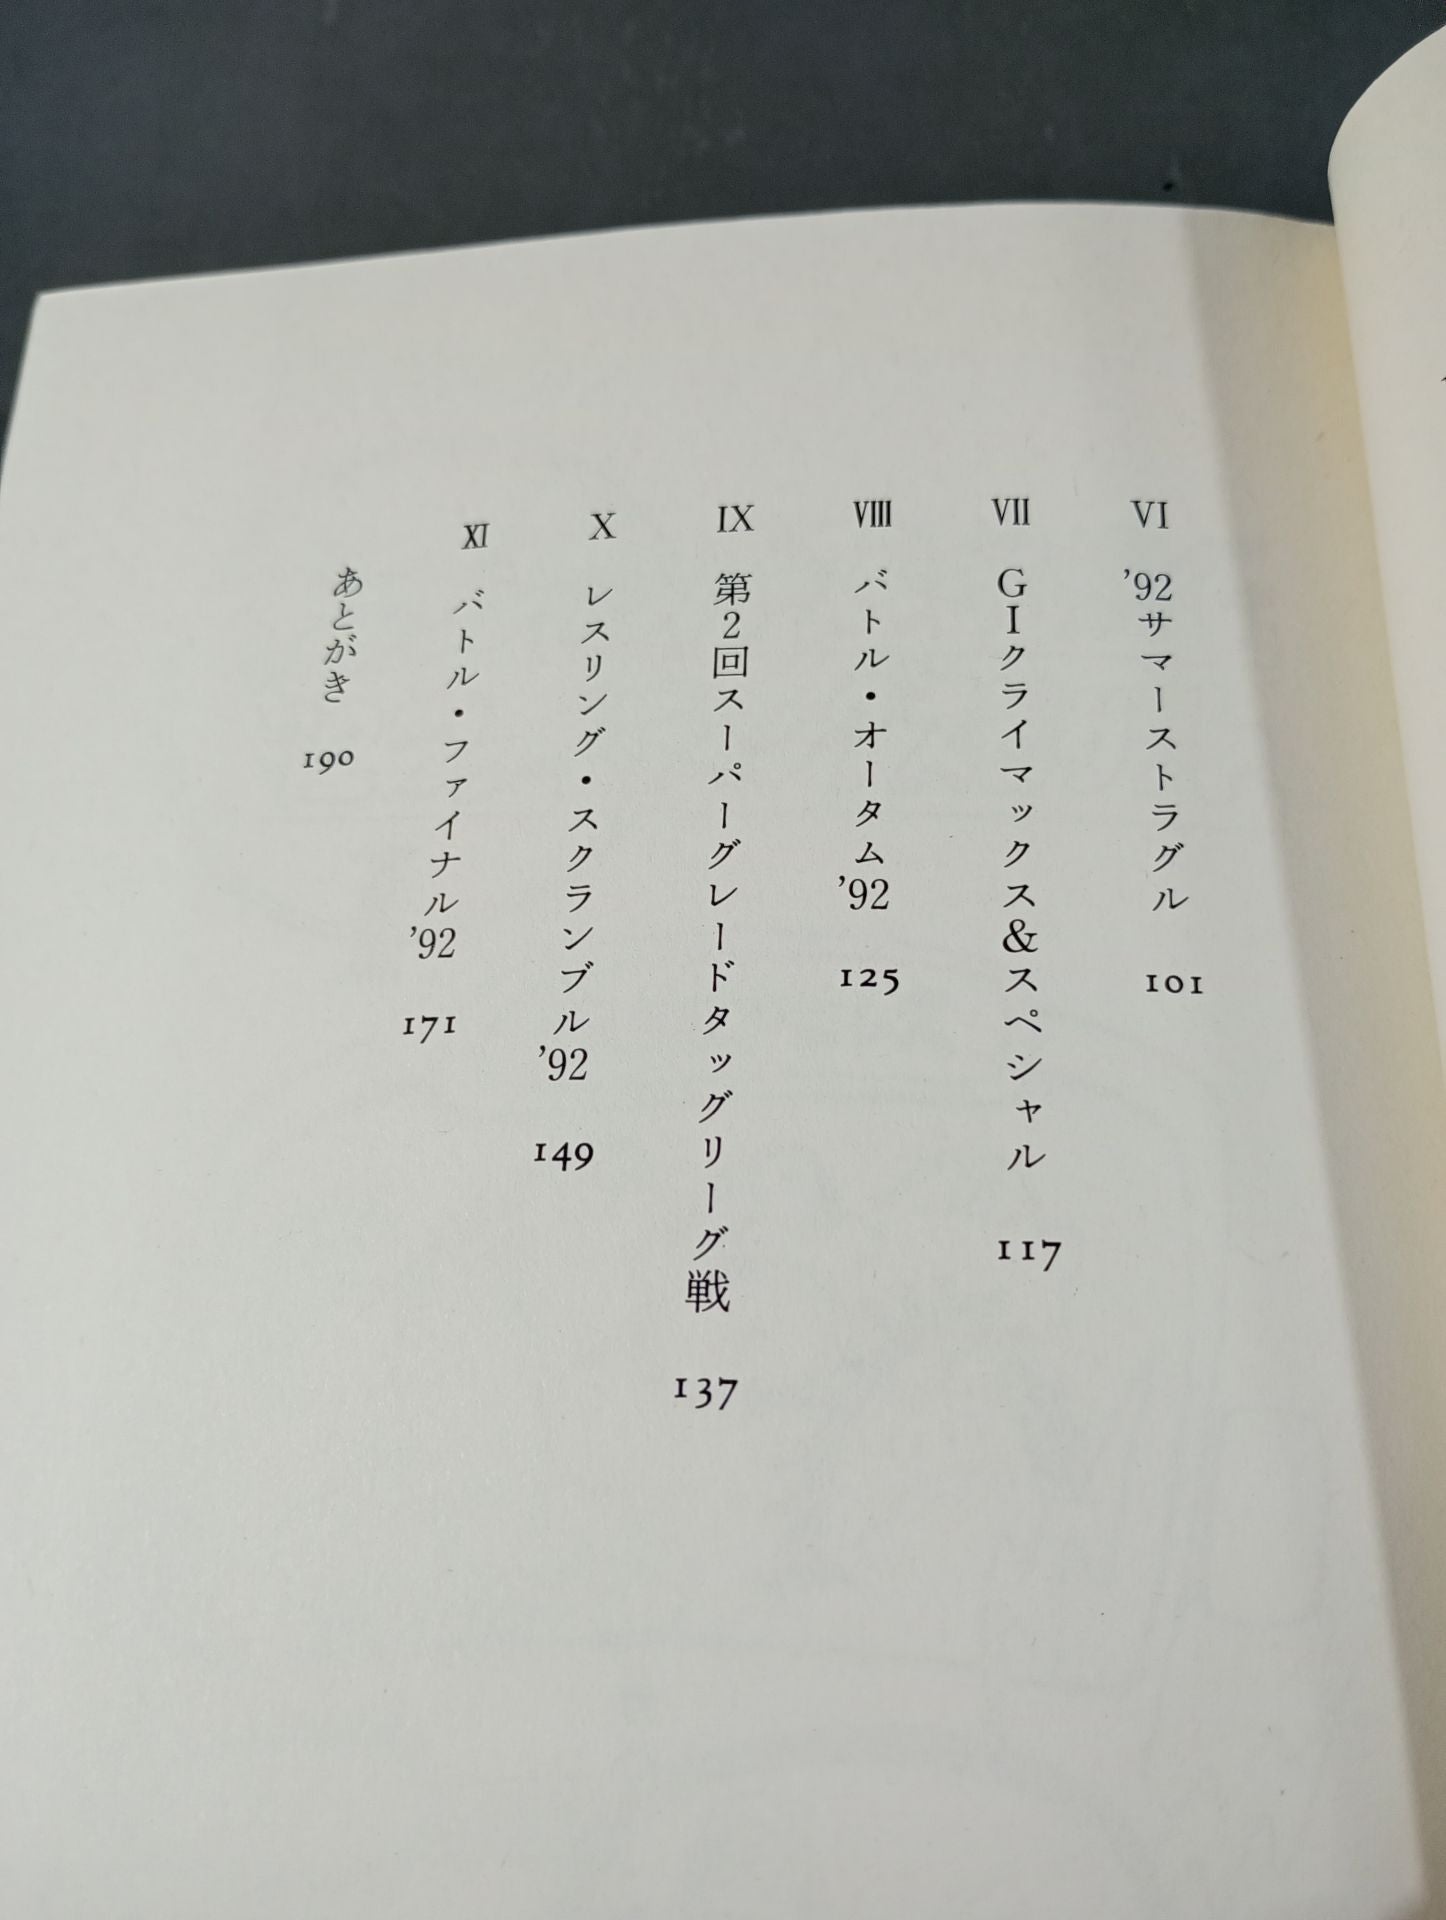 VI ’92サマーストラグル 101
VII GIクライマックス&スペシャル 117
VIII バトル・オータム’92 125
IX 第2回スーパーグレードタッグリーグ戦 137
X レスリング・スクランブル’92 149
XI バトル・ファイナル’92 171
あとがき 190